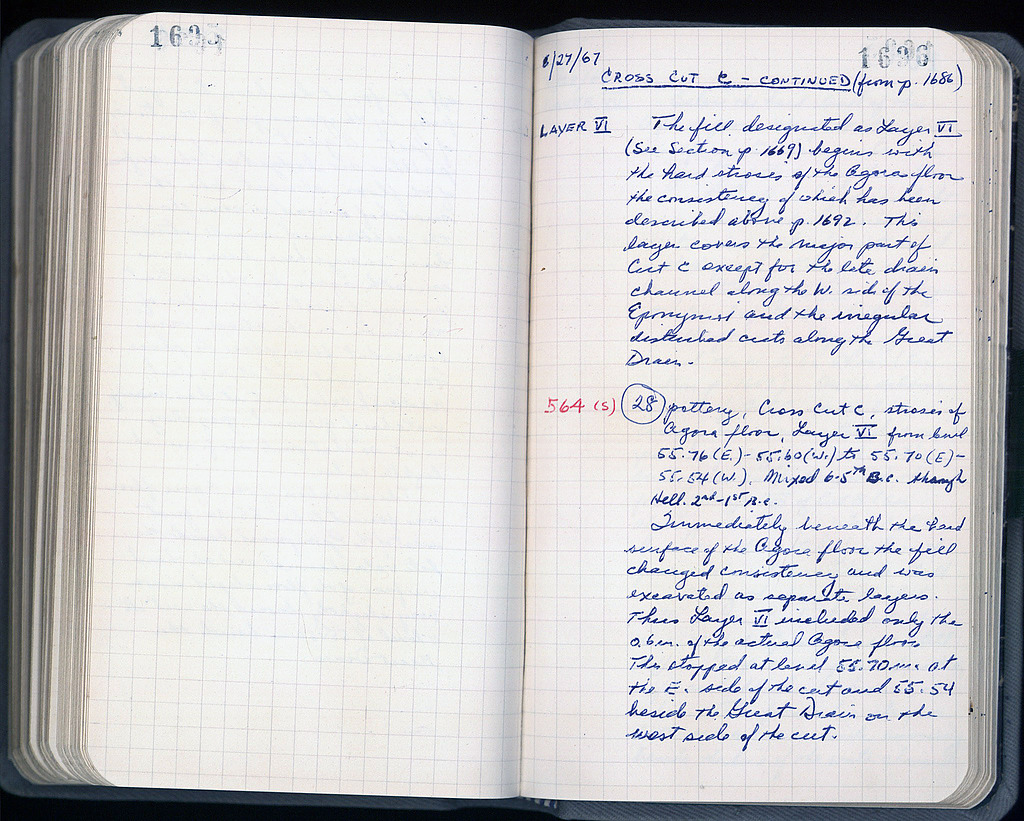 1695
1696
6/27/67
CROSS CUT C - CONTINUED (from p. 1686)
LAYER VI The fill designated as Layer VI
(See Section p. 1669) begins with
the hard stroses of the Agora floor
the consistency of which has been
described above p. 1692. This
layer covers the major part of
Cut C except for the late drain
channel along the W. side of the
Eponymoi and the irregular
disturbed cuts along the Great
Drain.
564 (S) 28 pottery, Cross Cut C, stroses of
Agora floor, Layer VI from level
55.76 (E.) - 55.60 (W.) to 55.70 (E) -
55.54 (W.). Mixed 6-5th B.C. through
Hell. 2nd-1st B.C.
Immediately beneath the hard
surface of the Agora floor the fill
changed consistency and was
excavated as separate layers.
Thus Layer VI included only the
0.6m. of the actual Agora floor.
This stopped at level 55.70m. at
the E. side of the cut and 55.54
beside the Great Drain on the
west side of the cut.